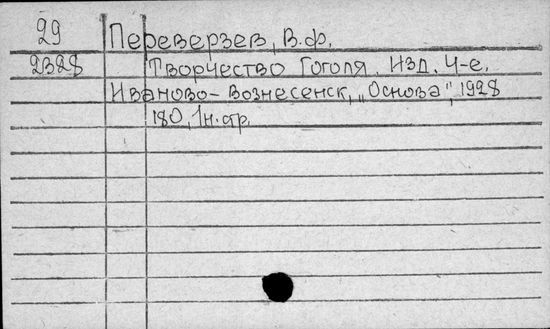 29 Переверзев, В.Ф.
2328 Творчество Гоголя. Изд. 4-е.
Иваново-Вознесенск, „Основа", 1928
180, 1н.стр.